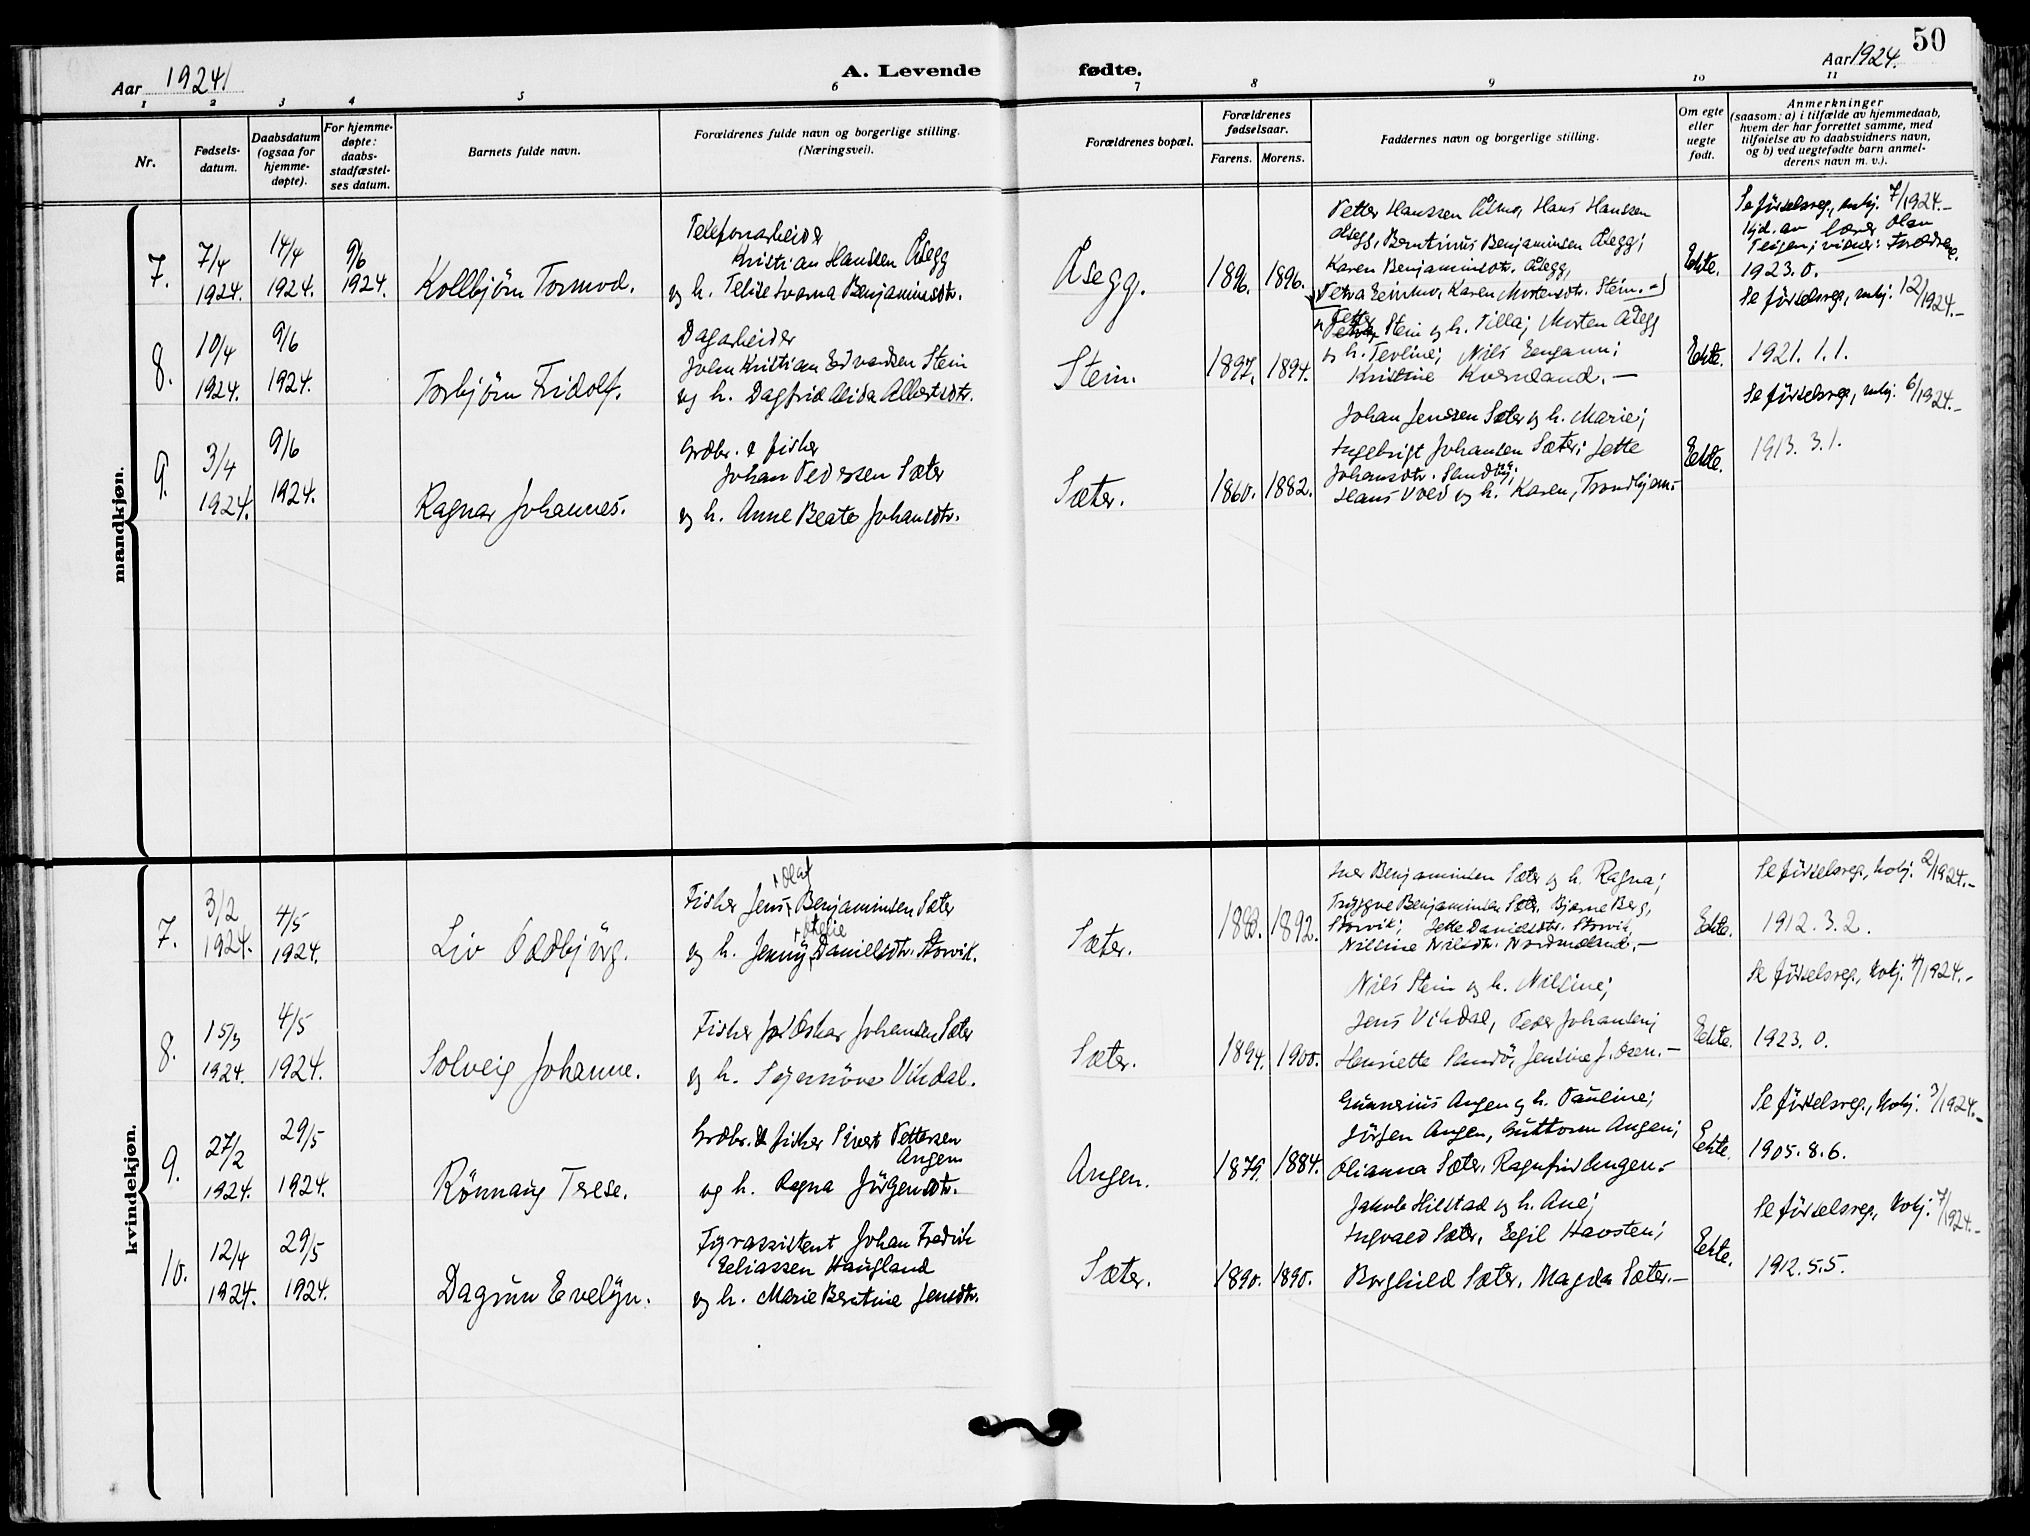 50
Aar 1924
A. Levende fødte.
Aar 1924.
1 2 3 4 5 6 7 8 9 10 11
Nr.
Fødsels-
datum.
Daabsdatum
(ogsaa for
hjemme-
døpte).
For hjemme-
døpte:
daabs-
stadfæstel-
ses datum.
Barnets fulde navn.
Forældrenes fulde navn og borgerlige stilling.
(Næringsvei).
Forældrenes bopæl.
Forældrenes
fødselsaar.
Farens. Morens.
Faddernes navn og borgerlige stilling.
Om egte
eller
uegte
født.
Anmerkninger
(saasom: a) i tilfælde av hjemmedaab,
hvem der har forrettet samme, med
tilføielse av to daabsvidners navn,
og b) ved uegtefødte barn anmel-
derens navn m. v.).
mandkjøn.
7.
7/4
1924.
14/4
1924.
9/6
1924.
Kollbjörn Tormod.
Telefonarbeider
Kristian Hanssen Åsegg
og h. Telise Svarna Benjaminsdtr.
Åsegg.
1896. 1896.
Petter Hanssen Åsmo, Hans Hanssen
Åsegg, Berntinus Benjaminsen Åsegg;
Karen Benjaminsdtr. Åsegg,
Petra Reinmo, Karen Mortensdtr. Stein.-
Ekte.
Se fødselsreg., mkj. 7/1924.-
Hjd. av lærer Olav
Teigen; vidner: Forældrene.
1923. 0.
8.
10/4
1924.
9/6
1924.
Torbjörn Fridolf.
Dagarbeider
John Kristian Edvardsen Stein
og h. Dagfrid Alida Albertsdtr.
Stein.
1897. 1894.
Petter Stein og h. Tilla; Morten Åsegg
og h. Tevline; Nils Engann;
Kristine Kvernland.-
Ekte.
Se fødselsreg., mkj. 12/1924.-
1921. 1. 1.
9.
3/4
1924.
9/6
1924.
Ragnar Johannes.
Grdbr. & fisker
Johan Pedersen Sæter
og h. Anne Beate Johansdtr.
Sæter.
1860. 1882.
Johan Jenssen Sæter og h. Marie;
Ingebrigt Johansen Sæter; Jette
Johansdtr. Sandö;
Hans Vold og h. Karen, Trondhjem.-
Ekte.
Se fødselsreg., mkj. 6/1924.-
1913. 3. 1.
kvindekjøn.
7.
3/2
1924.
4/5
1924.
Liv Oddbjörg.
+ Olaf
Fisker Jens Benjaminsen Sæter
og h. Jenny Danielsdtr. Storvik.
Sæter.
1892.
Iver Benjaminsen Sæter og h. Ragna;
Tryggve Benjaminsen Sæter, Bjarne Berg,
Storvik; Jette Danielsdtr. Storvik,
Nilsine Nilsdtr. Nordmeland.-
Ekte.
Se fødselsreg., kvkj. 2/1924.-
1912. 3. 2.
8.
15/3
1924.
4/5
1924.
Solveig Johanne.
Fisker Oskar Johansen Sæter
og h. Synnöve Vikdal.
Sæter.
1894. 1900.
Nils Stein og h. Nilsine;
Jens Vikdal, Peder Johansen;
Henriette Sandö, Jensine J. Osen.-
Ekte.
Se fødselsreg., kvkj. 4/1924.-
1923. 0.
9.
27/2
1924.
29/5
1924.
Rönnaug Terese.
Grdbr. & fisker Sivert Pettersen
Angen
og h. Ragna Jörgensdtr.
Angen.
1879. 1884.
Gunnerius Angen og h. Pauline;
Jörgen Angen, Guttorm Angen;
Olianna Sæter, Ragnfrid Angen.-
Ekte.
Se fødselsreg., kvkj. 3/1924.-
1905. 8. 6.
10.
12/4
1924.
29/5
1924.
Dagrun Evelyn.
Fyrassistent Johan Fredrik
Eeliassen Haugland
og h. Marie Berntine Jensdtr.
Sæter.
1890. 1890.
Jakob Hilstad og h. Ane;
Ingvald Sæter, Egil Havsten;
Borghild Sæter, Magda Sæter.-
Ekte.
Se fødselsreg., kvkj. 7/1924.-
1912. 5. 5.